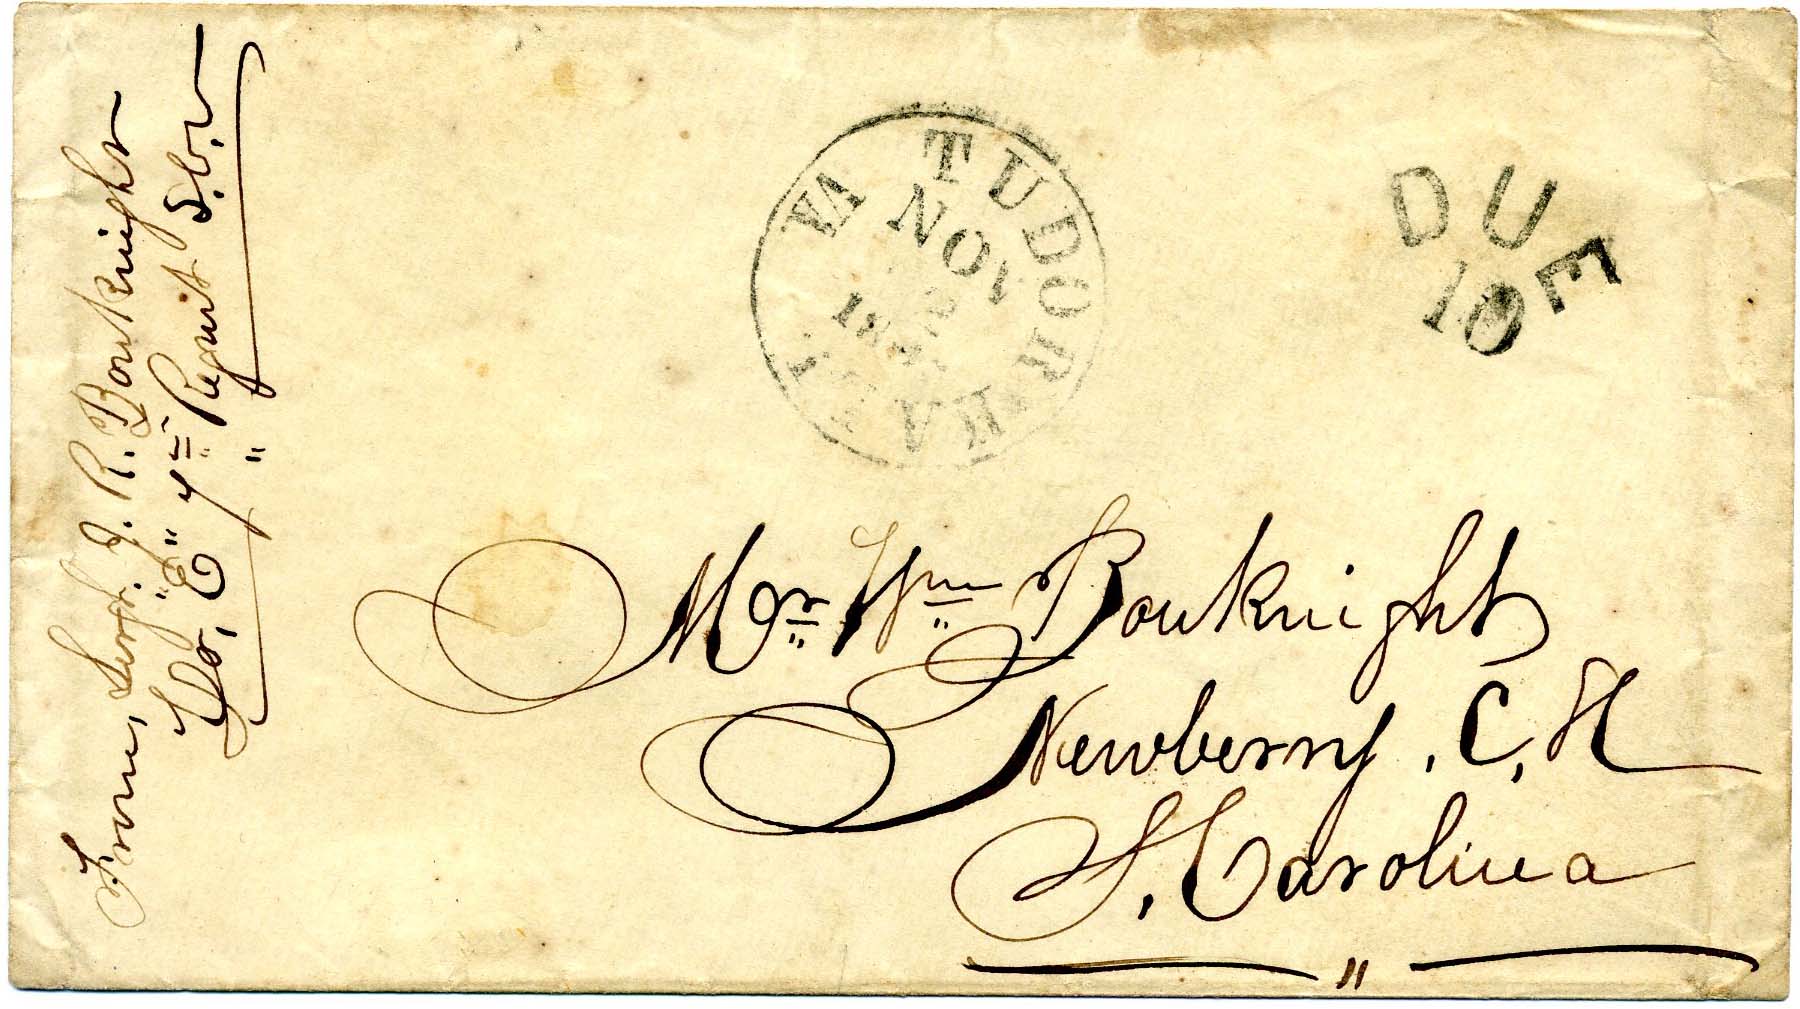 From, Sergt. J. R. Bouknight
Co, "E" 7th Regmt S.C.V.
TUDOR HALL VA
NOV
DUE
10
Mr Wm Bouknight
Newberry. C, H
S, Carolina